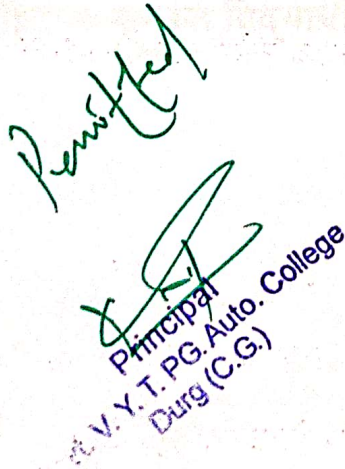 Permitted
Principal
t. V. Y. T. PG. Auto. College
Durg (C.G.)